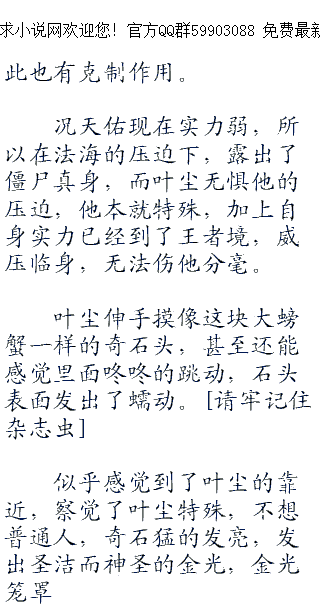 求小说网欢迎您！官方QQ群59903088 免费最新
此也有克制作用。
况天佑现在实力弱，所
以在法海的压迫下，露出了
僵尸真身，而叶尘无惧他的
压迫，他本就特殊，加上自
身实力已经到了王者境，威
压临身，无法伤他分毫。
叶尘伸手摸像这块大螃
蟹一样的奇石头，甚至还能
感觉里面咚咚的跳动，石头
表面发出了蠕动。[请牢记住
杂志虫]
似乎感觉到了叶尘的靠
近，察觉了叶尘特殊，不想
普通人，奇石猛的发亮，发
出圣洁而神圣的金光，金光
笼罩